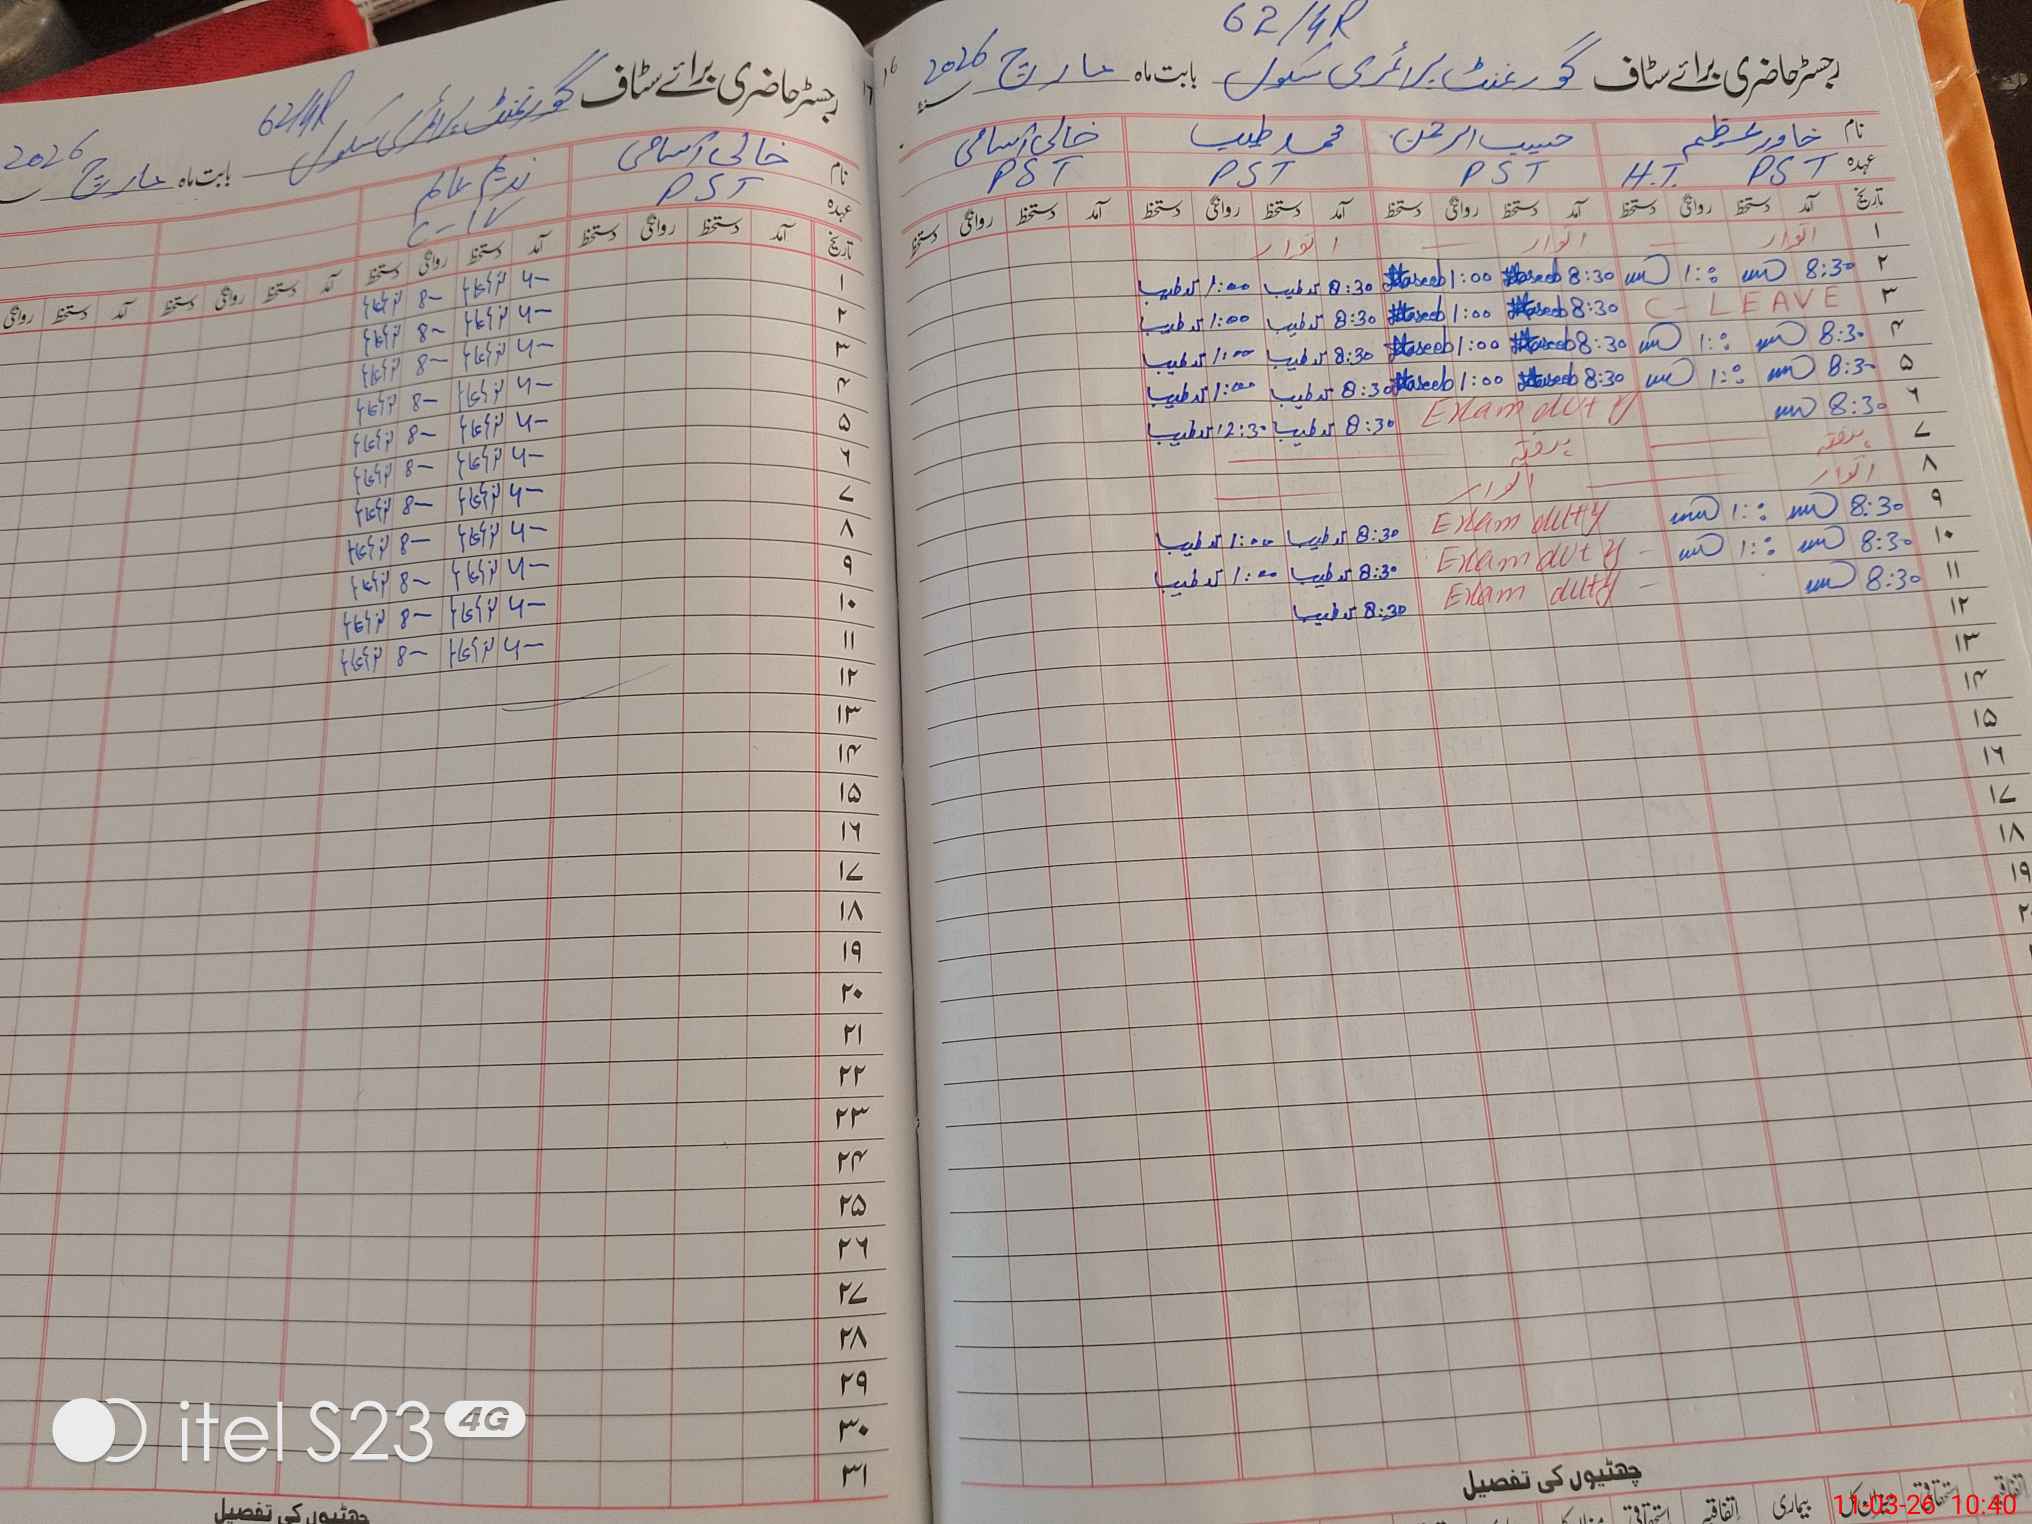 62/4R
رجسٹر حاضری برائے سٹاف گورنمنٹ پرائمری سکول بابت ماہ مارچ 2026
نام خاور عظیم حبیب الرحمن محمد طیب خالی آسامی
عہدہ PST H.T. PST PST PST
تاریخ آمد دستخط روانگی دستخط آمد دستخط روانگی دستخط آمد دستخط روانگی دستخط آمد دستخط روانگی دستخط
۱ اتوار اتوار اتوار
۲ 8:30 1:00 8:30 Haseeb 1:00 Haseeb 8:30 طیب 1:00 طیب
۳ C-LEAVE 8:30 Haseeb 1:00 Haseeb 8:30 طیب 1:00 طیب
۴ 8:30 1:00 8:30 Haseeb 1:00 Haseeb 8:30 طیب 1:00 طیب
۵ 8:30 1:00 8:30 Haseeb 1:00 Haseeb 8:30 طیب 1:00 طیب
۶ 8:30 Exam duty 8:30 طیب 12:30 طیب
۷ ہفتہ ہفتہ
۸ اتوار اتوار
۹ 8:30 1:00 Exam duty 8:30 طیب 1:00 طیب
۱۰ 8:30 1:00 Exam duty 8:30 طیب 1:00 طیب
۱۱ 8:30 Exam duty 8:30 طیب
۱۲
۱۳
۱۴
۱۵
۱۶
۱۷
۱۸
۱۹
چھٹیوں کی تفصیل
اتفاقیہ استحقاقی بیماری اتفاقیہ استحقاقی
11-03-26 10:40
۱۶
62/4R
رجسٹر حاضری برائے سٹاف گورنمنٹ پرائمری سکول بابت ماہ مارچ 2026
نام خالی آسامی ندیم عالم
عہدہ PST
تاریخ آمد دستخط روانگی دستخط آمد دستخط روانگی دستخط آمد دستخط روانگی دستخط آمد دستخط روانگی
۱ 4 8
۲ 4 8
۳ 4 8
۴ 4 8
۵ 4 8
۶ 4 8
۷ 4 8
۸ 4 8
۹ 4 8
۱۰ 4 8
۱۱ 4 8
۱۲
۱۳
۱۴
۱۵
۱۶
۱۷
۱۸
۱۹
۲۰
۲۱
۲۲
۲۳
۲۴
۲۵
۲۶
۲۷
۲۸
۲۹
۳۰
۳۱
چھٹیوں کی تفصیل
itel S23 4G